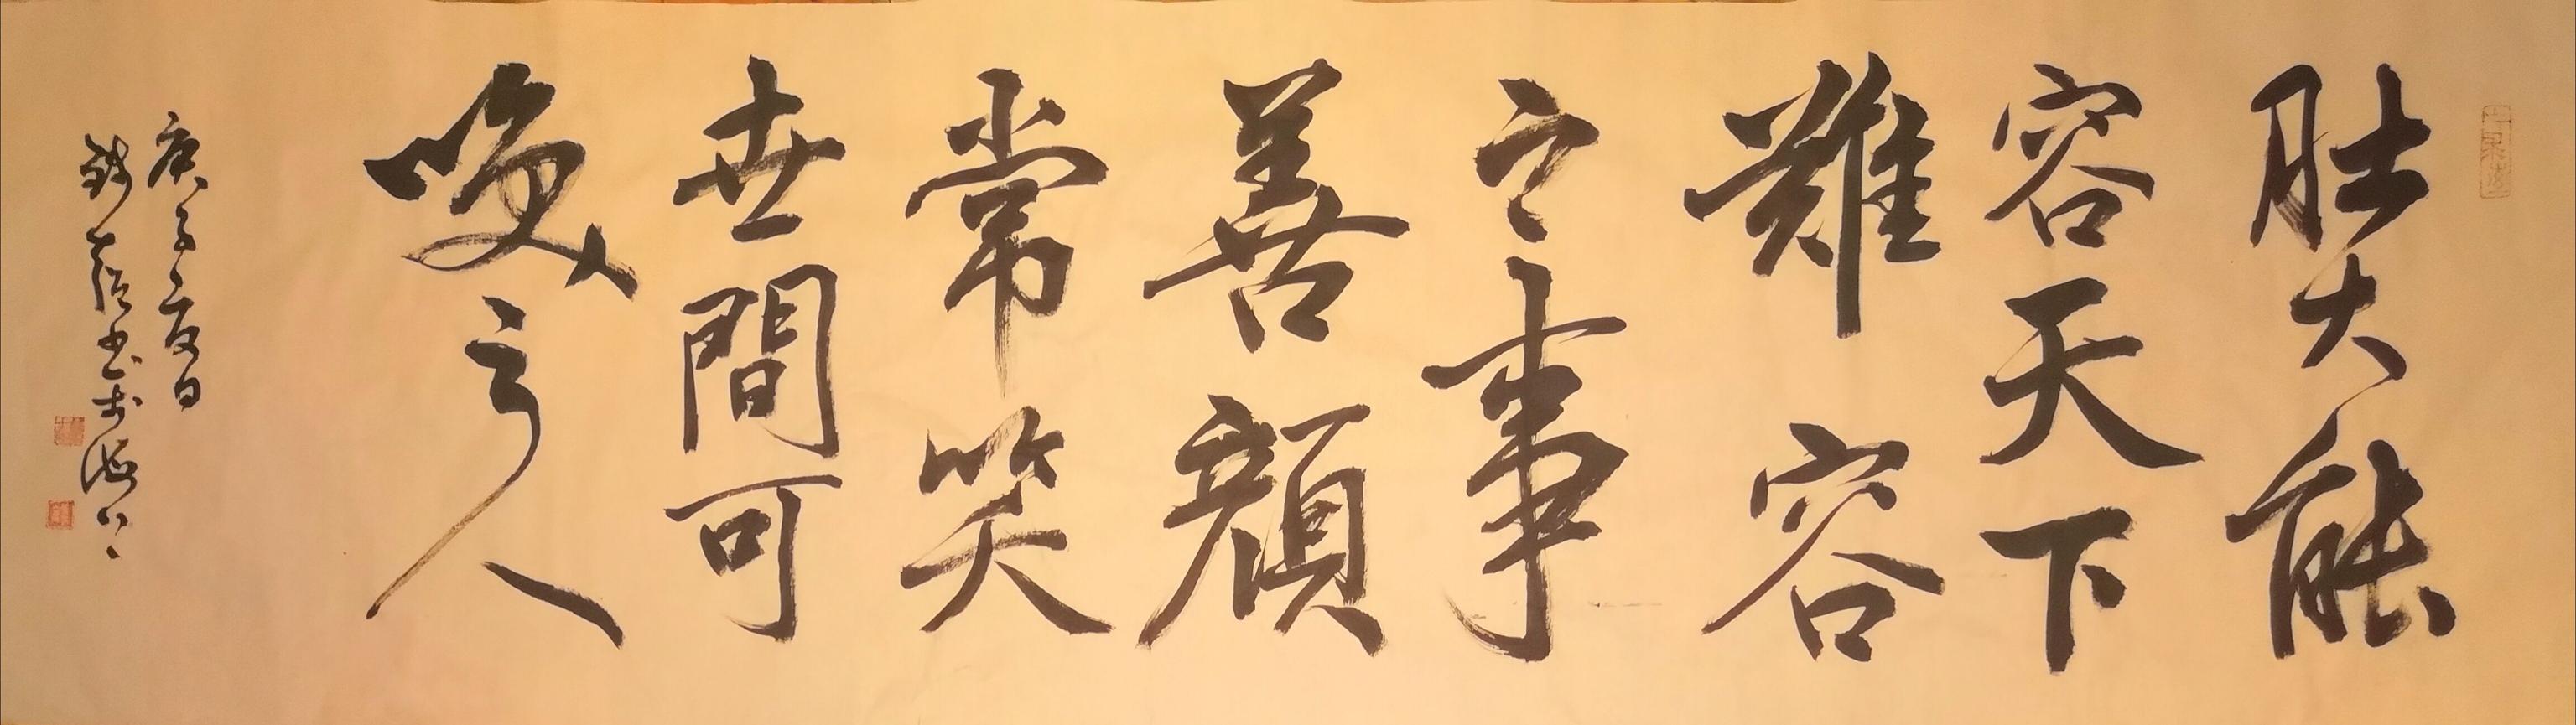 肚大能
容天下
難容
之事
善顔
常笑
世間可
笑之人
庚子夏日
書於海上